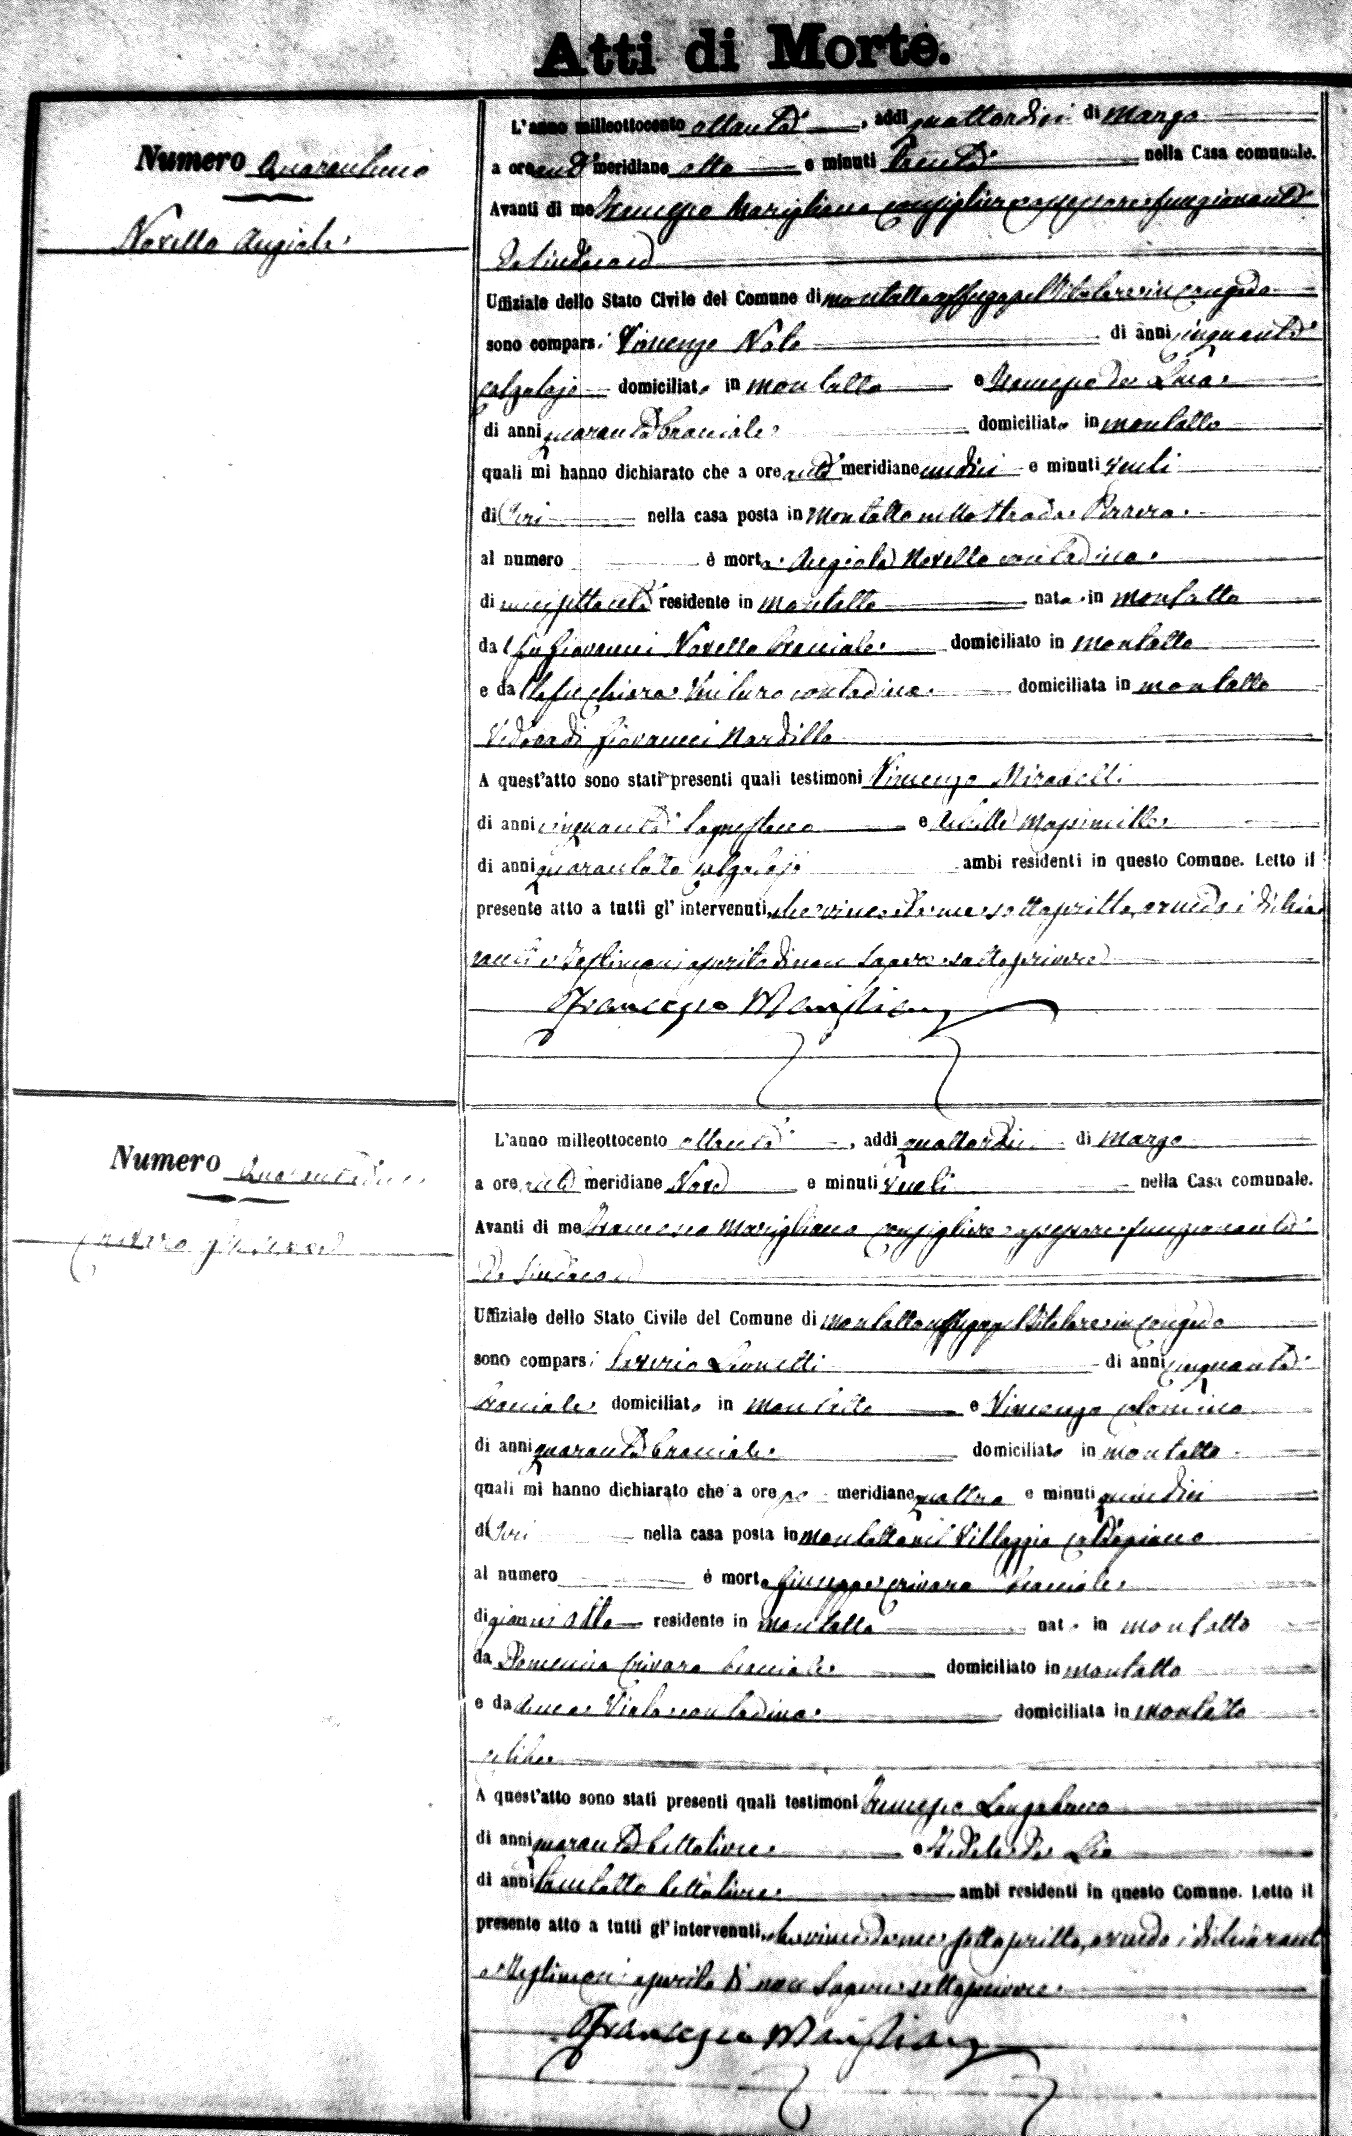 Atti di Morte.
Numero Quarantuno
Novello Angiola
L'anno milleottocento ottanta, addì quattordici di Marzo
a ore anti meridiane otto e minuti trenta nella Casa comunale.
Avanti di me Francesco Marigliano consigliere assessore funzionante
da Sindaco
Uffiziale dello Stato Civile del Comune di Montalto Uffugo pel titolare in congedo
sono comparsi Vincenzo di anni cinquanta
calzolajo domiciliato in Montalto e Francesco de Luca
di anni quaranta bracciale domiciliato in Montalto
quali mi hanno dichiarato che a ore anti meridiane undici e minuti venti
di Ieri nella casa posta in Montalto nella strada
al numero è morta Angiola Novello contadina
di anni settanta residente in Montalto nata in Montalto
dal fu Giovanni Novello bracciale domiciliato in Montalto
e dalla fu Chiara contadina domiciliata in Montalto
Vedova di Giovanni Nardillo
A quest'atto sono stati presenti quali testimoni Vincenzo Mirabelli
di anni cinquanta Sagrestano e Achille
di anni quarantotto calzolajo ambi residenti in questo Comune. Letto il
presente atto a tutti gl'intervenuti, che viene da me sottoscritto, avendo i dichia
ranti e testimoni asserito di non sapere sottoscrivere
Francesco Marigliano
Numero Quarantadue
Crivaro Giuseppe
L'anno milleottocento ottanta, addì quattordici di Marzo
a ore anti meridiane Nove e minuti venti nella Casa comunale.
Avanti di me Francesco Marigliano consigliere assessore funzionante
da Sindaco
Uffiziale dello Stato Civile del Comune di Montalto Uffugo pel titolare in congedo
sono comparsi Saverio Leonetti di anni cinquanta
bracciale domiciliato in Montalto e Vincenzo
di anni quaranta bracciale domiciliato in Montalto
quali mi hanno dichiarato che a ore po meridiane quattro e minuti quindici
di Ieri nella casa posta in Montalto nel Villaggio
al numero è morto Giuseppe Crivaro bracciale
di residente in Montalto nato in Montalto
da Domenico Crivaro bracciale domiciliato in Montalto
e da Anna Viola contadina domiciliata in Montalto
celibe
A quest'atto sono stati presenti quali testimoni Francesco Longobucco
di anni quaranta bettoliere e Fedele de Lio
di anni trentotto bettoliere ambi residenti in questo Comune. Letto il
presente atto a tutti gl'intervenuti, che viene da me sottoscritto, avendo i dichiaranti
e testimoni asserito di non sapere sottoscrivere
Francesco Marigliano